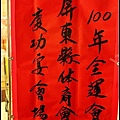 100年全運會
屏東縣休商會
慶功宴會場